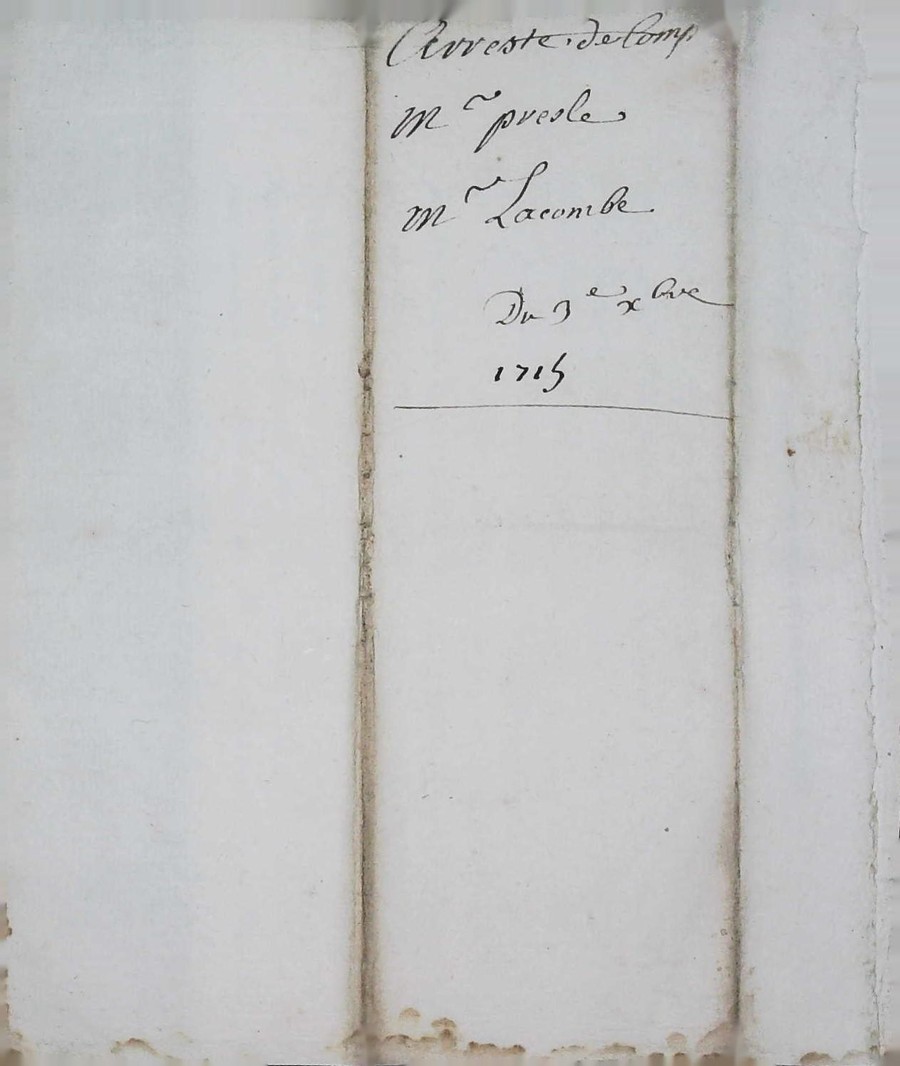 Arreste de Comp
Mr presle
Mr Lacombe
Du 3e xbre
1715